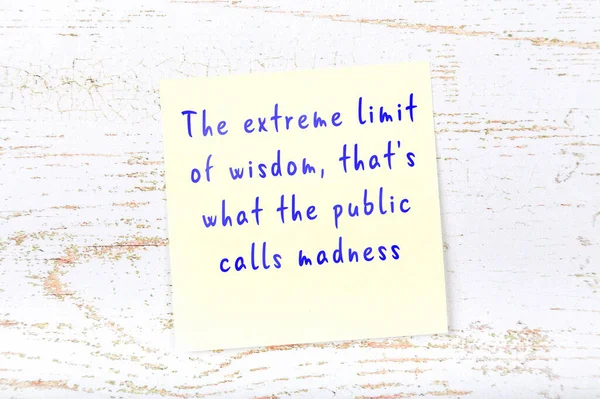 The extreme limit
of wisdom, that's
what the public
calls madness